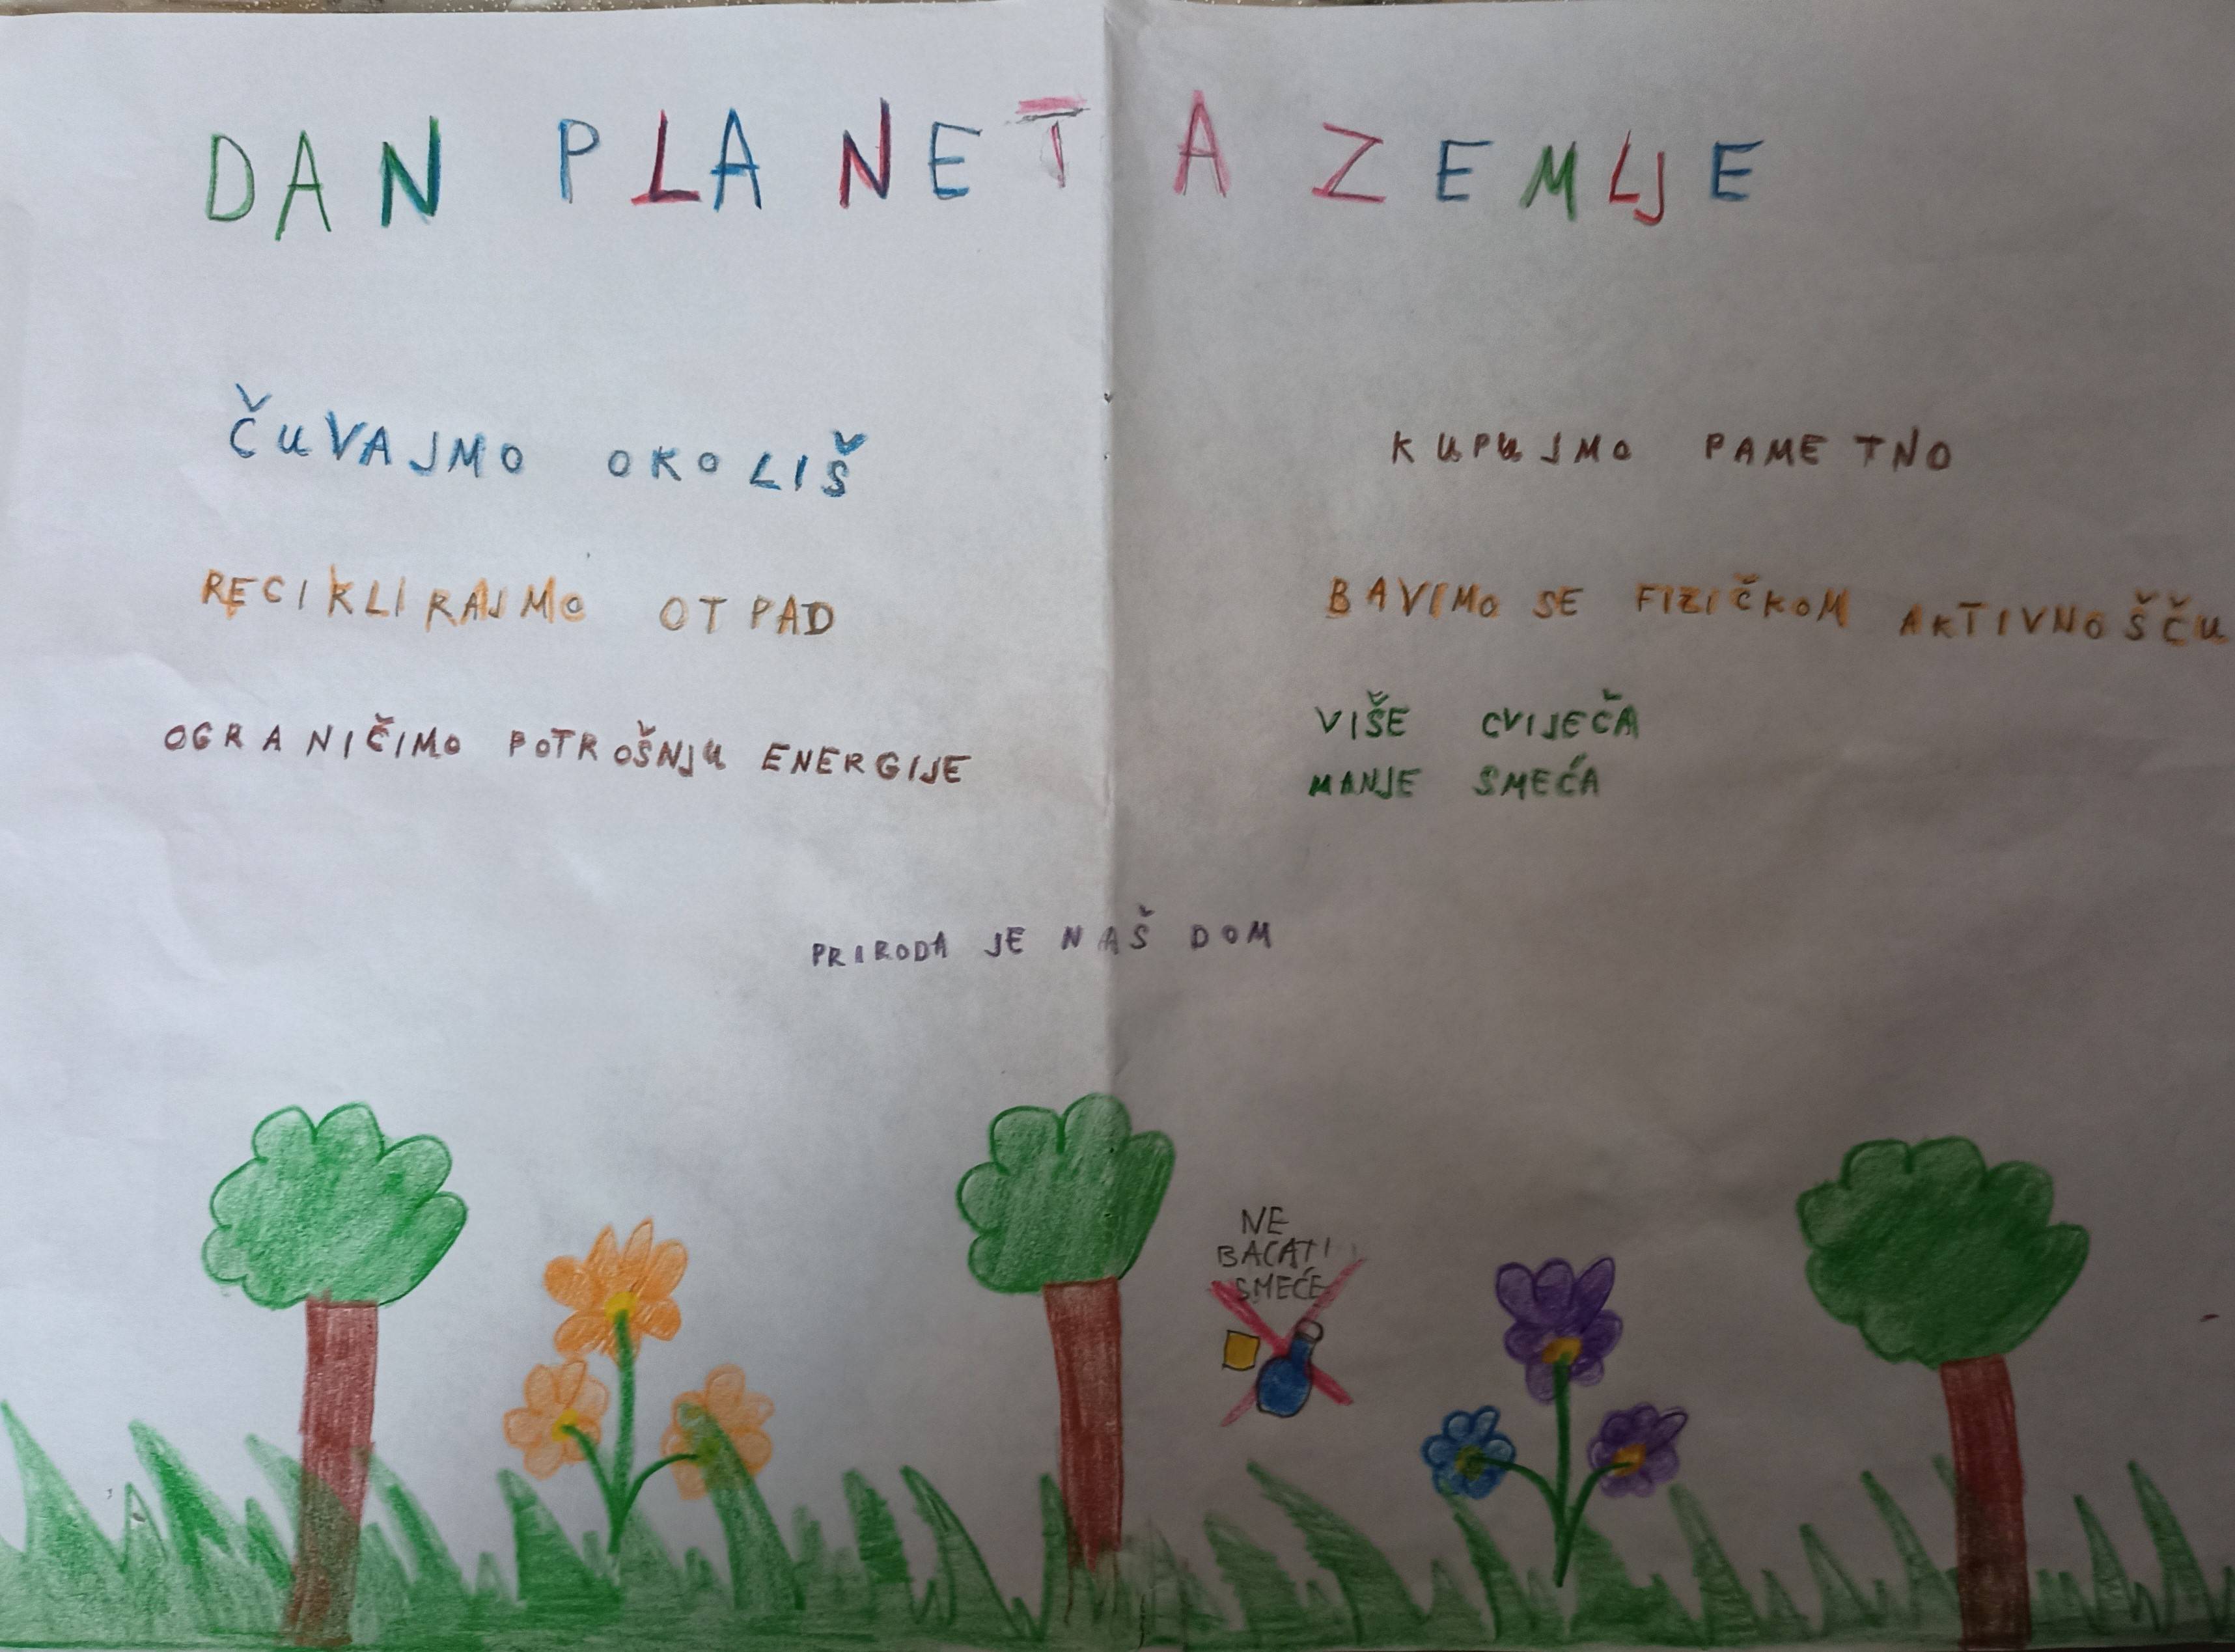 DAN PLANETA ZEMLJE
ČUVAJMO OKOLIŠ
RECIKLIRAJMO OTPAD
OGRANIČIMO POTROŠNJU ENERGIJE
KUPUJMO PAMETNO
BAVIMO SE FIZIČKOM AKTIVNOŠČU
VIŠE CVIJEČA
MANJE SMEĆA
PRIRODA JE NAŠ DOM
NE
BACATI
SMEĆE